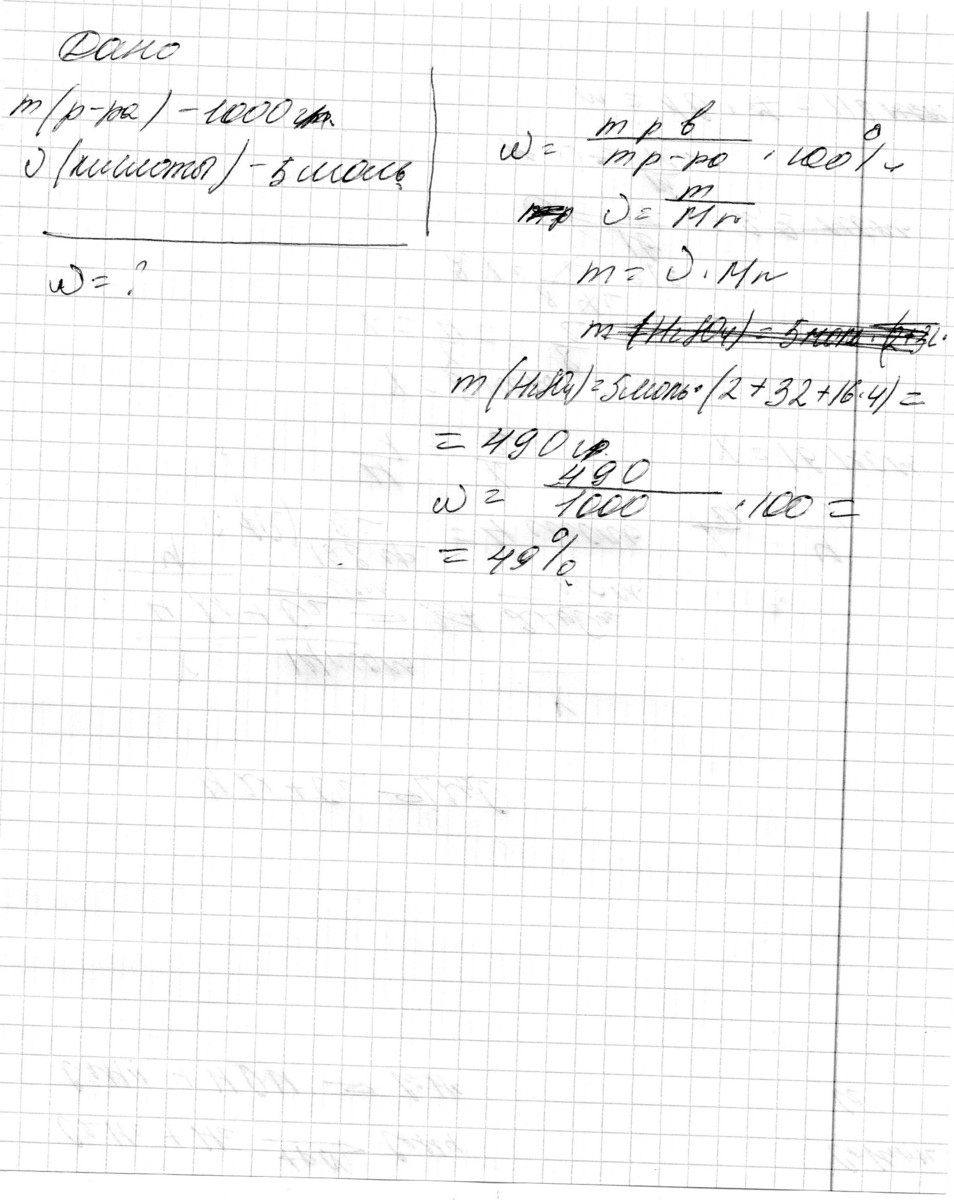 Дано
m(р-ра) - 1000 гр.
ν(кислоты) - 5 моль
ω = ?
ω = m р в / m р-ра · 100%
ν = m / Mr
m = ν · Mr
m (H₂SO₄) = 5 моль · (2+32
m (H₂SO₄) = 5 моль · (2 + 32 + 16·4) =
= 490 гр.
ω = 490 / 1000 · 100 =
= 49%